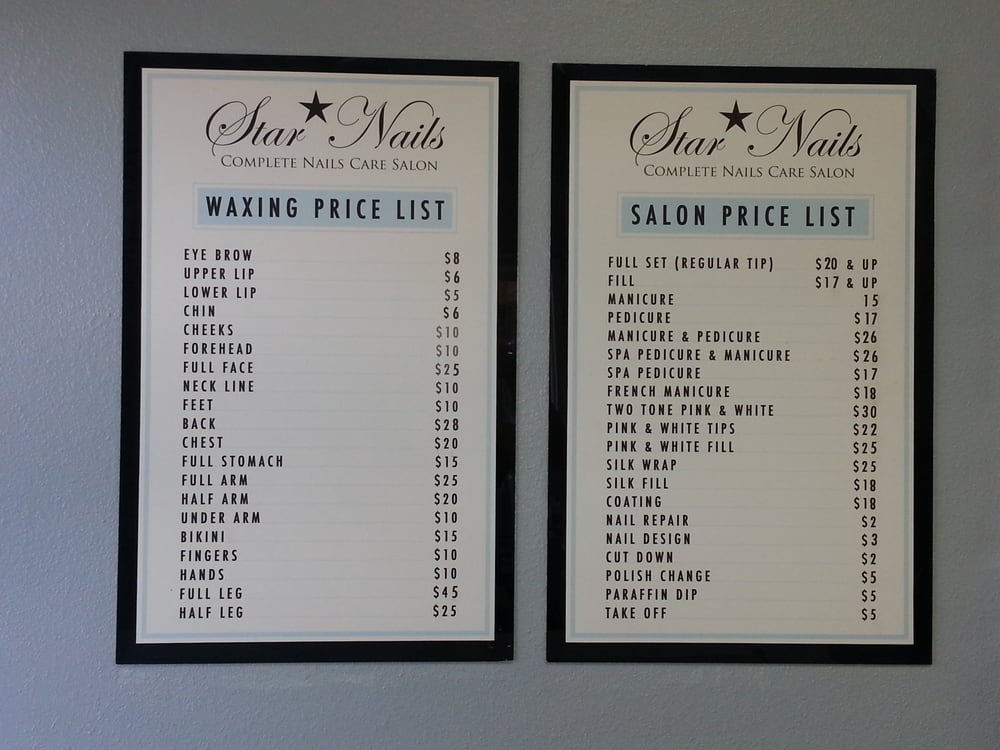 Star Nails
Complete Nails Care Salon
WAXING PRICE LIST
EYE BROW $8
UPPER LIP $6
LOWER LIP $5
CHIN $6
CHEEKS $10
FOREHEAD $10
FULL FACE $25
NECK LINE $10
FEET $10
BACK $28
CHEST $20
FULL STOMACH $15
FULL ARM $25
HALF ARM $20
UNDER ARM $10
BIKINI $15
FINGERS $10
HANDS $10
FULL LEG $45
HALF LEG $25
Star Nails
Complete Nails Care Salon
SALON PRICE LIST
FULL SET (REGULAR TIP) $20 & UP
FILL $17 & UP
MANICURE 15
PEDICURE $17
MANICURE & PEDICURE $26
SPA PEDICURE & MANICURE $26
SPA PEDICURE $17
FRENCH MANICURE $18
TWO TONE PINK & WHITE $30
PINK & WHITE TIPS $22
PINK & WHITE FILL $25
SILK WRAP $25
SILK FILL $18
COATING $18
NAIL REPAIR $2
NAIL DESIGN $3
CUT DOWN $2
POLISH CHANGE $5
PARAFFIN DIP $5
TAKE OFF $5